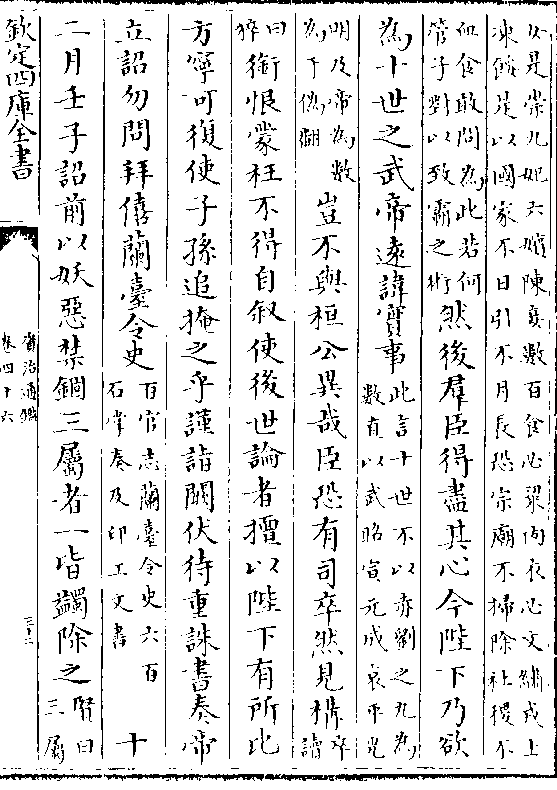 女是崇九妃六嬪陳妾數百食必梁肉衣必文繡戎士
凍餒是以國家不日引不月長恐宗廟不掃除社稷不
血食敢問為此若何
管子對以致霸之術然後羣臣得盡其心今陛下乃欲
為十世之武帝遠諱實事此言十世不以赤劉之九為
數直以武昭宣元成哀平光
明及帝為數
為于偽翻豈不與桓公異哉臣恐有司卒然見構卒讀
曰
猝銜恨蒙枉不得自叙使後世論者擅以陛下有所比
方寧可復使子孫追掩之乎謹詣闕伏待重誅書奏帝
立詔勿問拜僖蘭臺令史百官志蘭臺令史六百
石掌奏及印工文書十
二月壬子詔前以妖惡禁錮三屬者一皆蠲除之賢曰
三屬
欽定四庫全書
資治通鑑
卷四十六
三十三